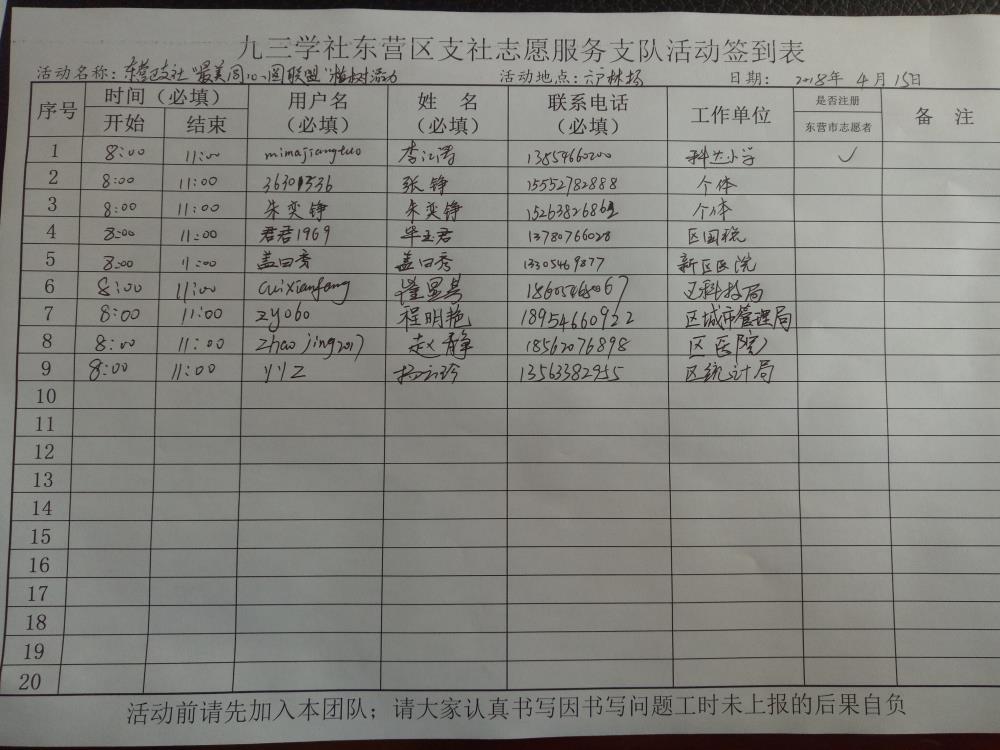 九三学社东营区支社志愿服务支队活动签到表
活动名称：东营区支社"最美同心圆联盟"植树活动 活动地点：六户林场 日期：2018年4月15日
序号 时间（必填） 用户名（必填） 姓名（必填） 联系电话（必填） 工作单位 是否注册东营市志愿者 备注
开始 结束
1 8:00 11:00 mimajiangtuo 李江涛 13854660200 科达小学 ✓
2 8:00 11:00 36301536 张铮 15552782888 个体
3 8:00 11:00 朱奕铮 朱奕铮 个体
4 8:00 11:00 君君1969 毕玉君 13780766028 区国税
5 8:00 11:00 盖曰秀 盖曰秀 13305469877 新区医院
6 8:00 11:00 cuixianfeng 区科技局
7 8:00 11:00 zyobo 程明艳 18954660922 区城市管理局
8 8:00 11:00 zhaojing2017 赵静 18562076898 区医院
9 8:00 11:00 yyz 13563382955 区统计局
10
11
12
13
14
15
16
17
18
19
20
活动前请先加入本团队；请大家认真书写因书写问题工时未上报的后果自负